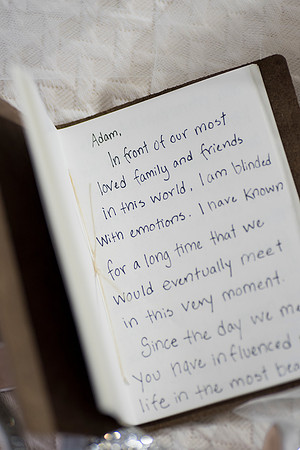 Adam,
In front of our most
loved family and friends
in this world, I am blinded
with emotions. I have known
for a long time that we
would eventually meet
in this very moment.
Since the day we me
you have influenced
life in the most bea